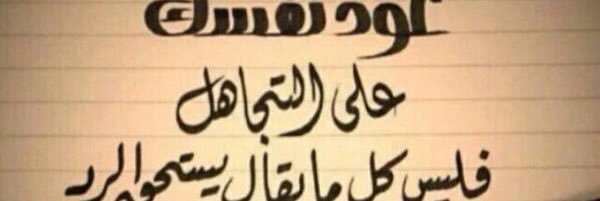 عود نفسك
على التجاهل
فليس كل ما يقال يستحق الرد